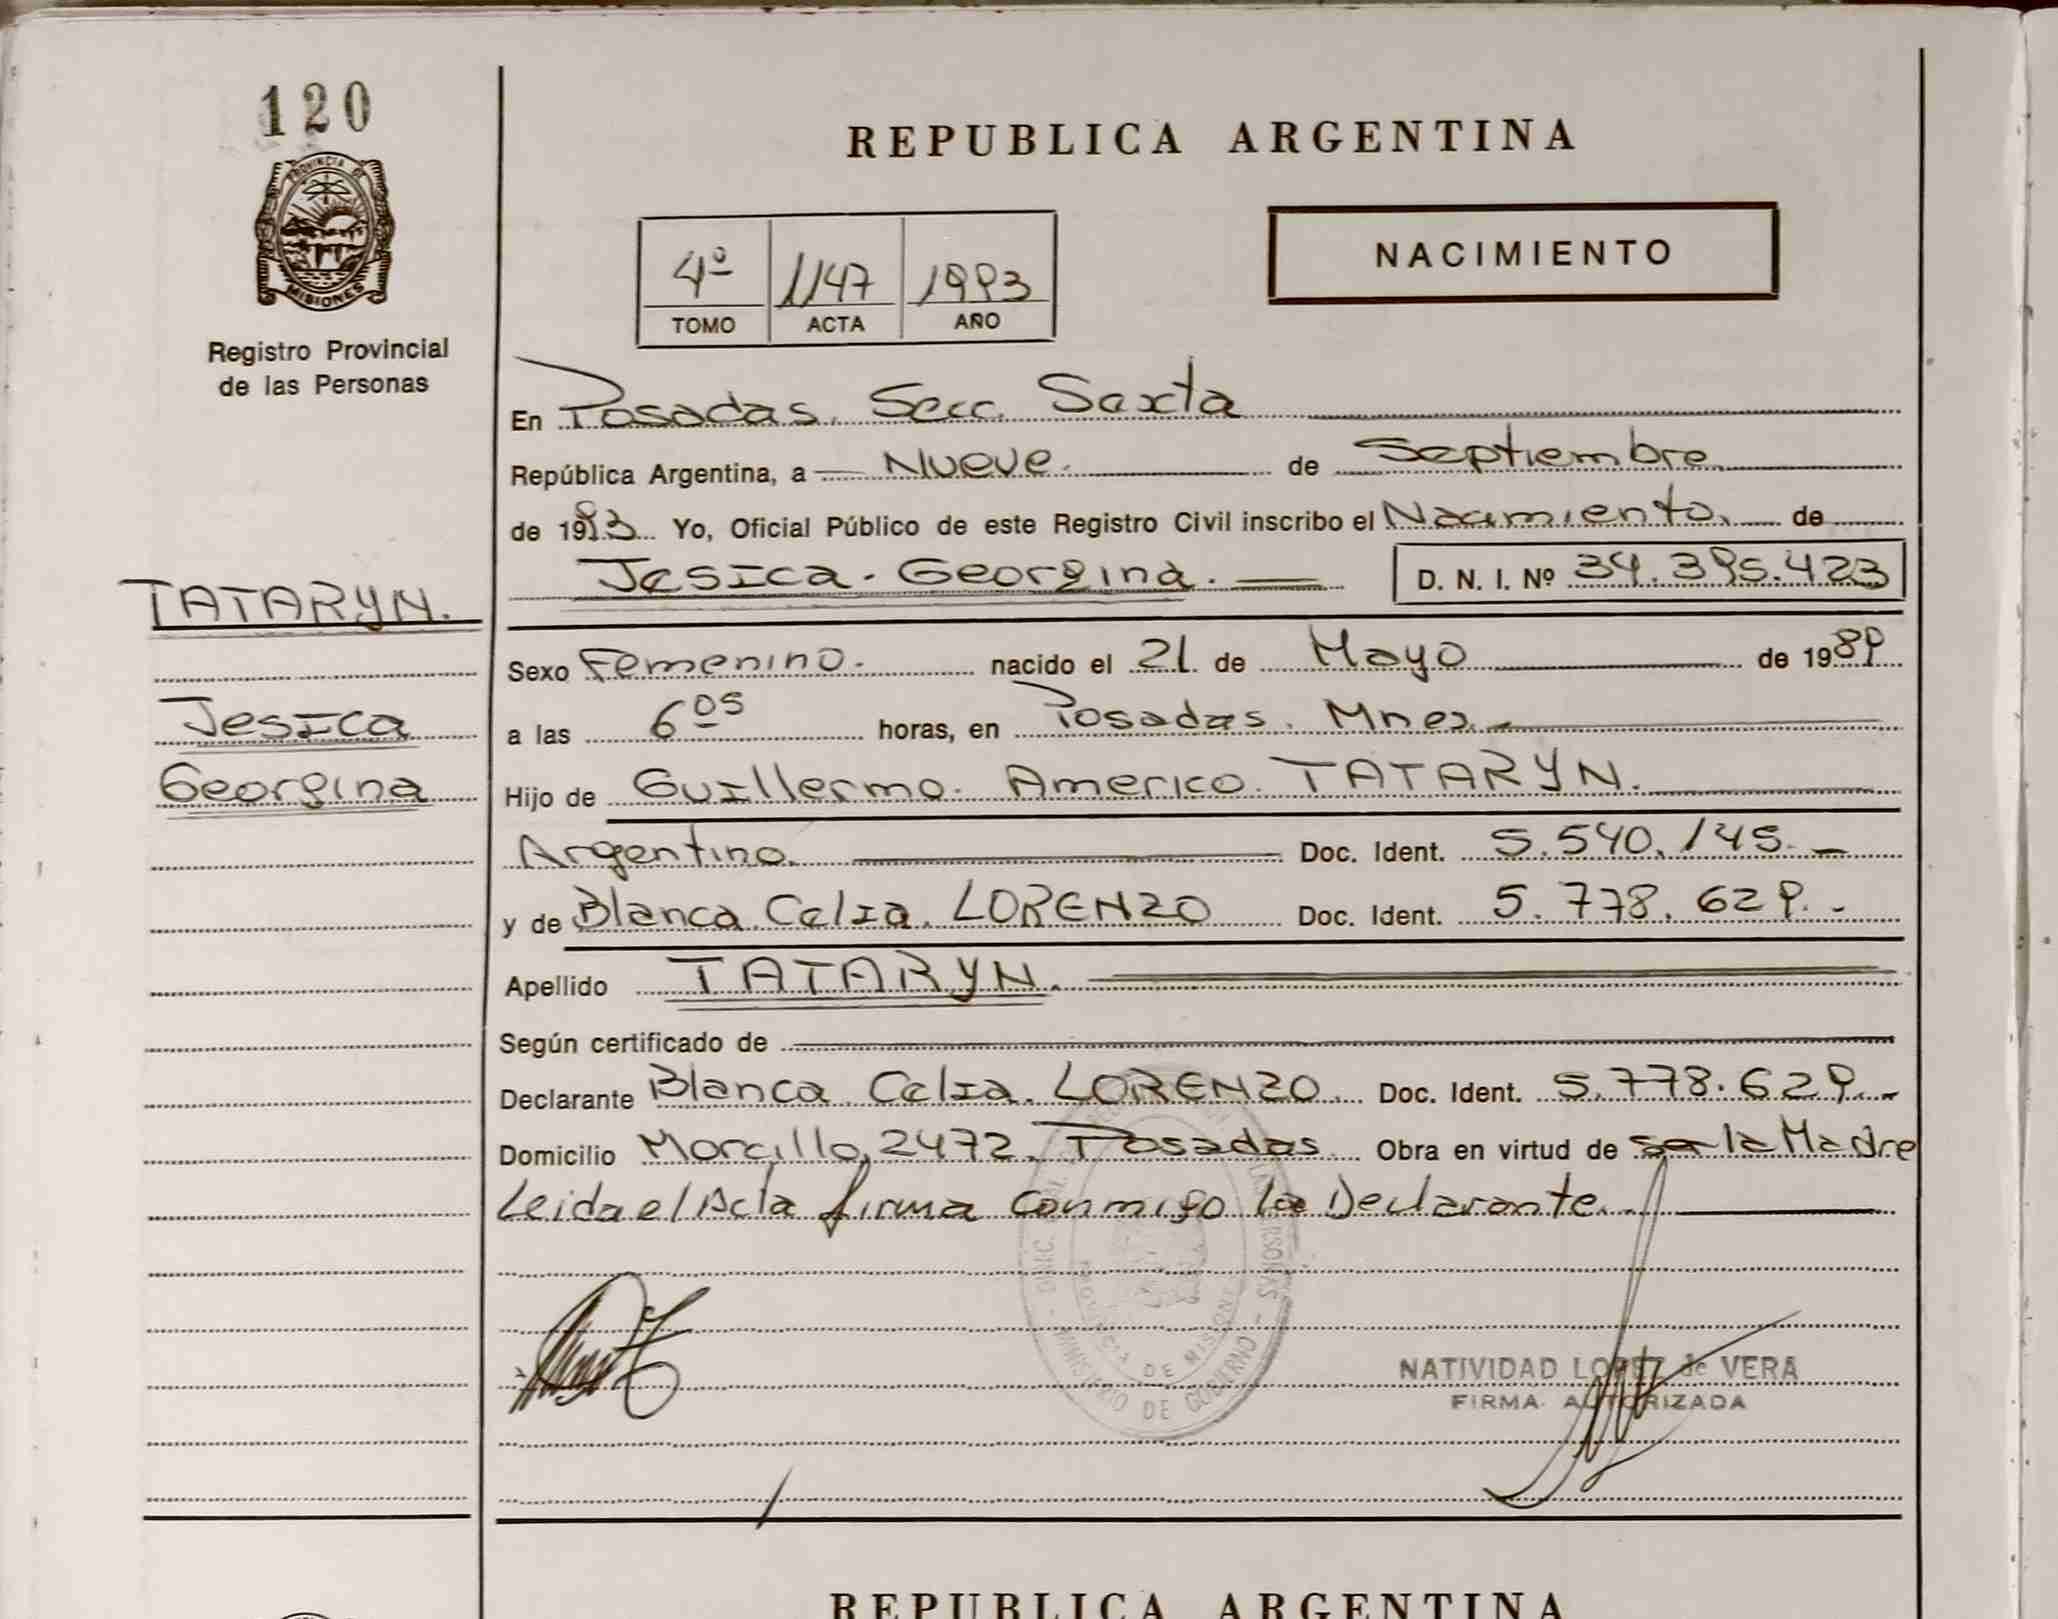 120
PROVINCIA DE
MISIONES
Registro Provincial
de las Personas
REPUBLICA ARGENTINA
4º 1147 1993
TOMO ACTA AÑO
NACIMIENTO
En Posadas. Secc. Sexta
República Argentina, a Nueve. de Septiembre
de 1993 Yo, Oficial Público de este Registro Civil inscribo el Nacimiento. de
Jesica. Georgina. D. N. I. Nº 34.395.423
TATARYN.
Jesica
Georgina
Sexo Femenino. nacido el 21 de Mayo de 1989
a las 6 05 horas, en Posadas. Mnes.
Hijo de Guillermo. Americo. TATARYN.
Argentino. Doc. Ident. 5.540.145.
y de Blanca. Celia. LORENZO Doc. Ident. 5.778.629.
Apellido TATARYN.
Según certificado de
Declarante Blanca. Celia. LORENZO. Doc. Ident. 5.778.629.
Domicilio Morcillo, 2472. Posadas. Obra en virtud de ser la Madre
Leida el Acta firma conmigo la Declarante.
PROVINCIA DE MISIONES
MINISTERIO DE GOBIERNO
NATIVIDAD LOPEZ de VERA
FIRMA AUTORIZADA
REPUBLICA ARGENTINA